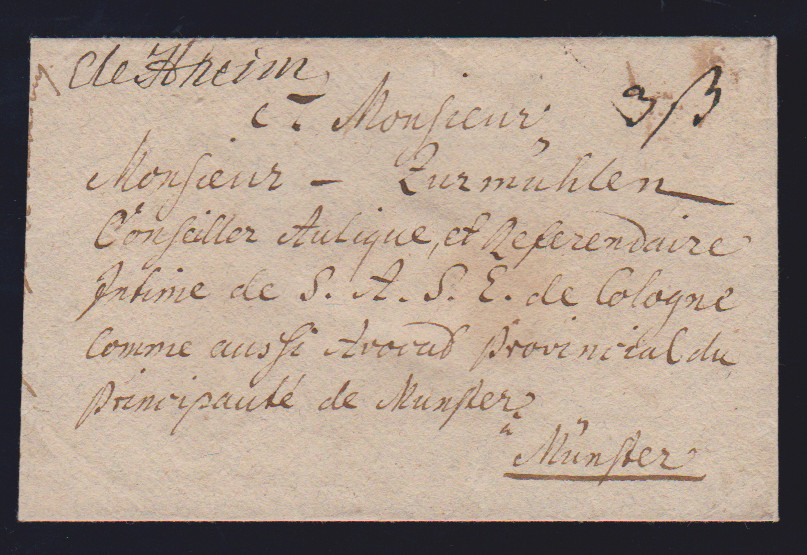 de Hheim
3/3
A Monsieur
Monsieur – Zurmühlen
Conseiller Aulique, et Referendaire
Intime de S. A. S. E. de Cologne
comme aussi Avocad Provincial du
Principauté de Munster
à Münster